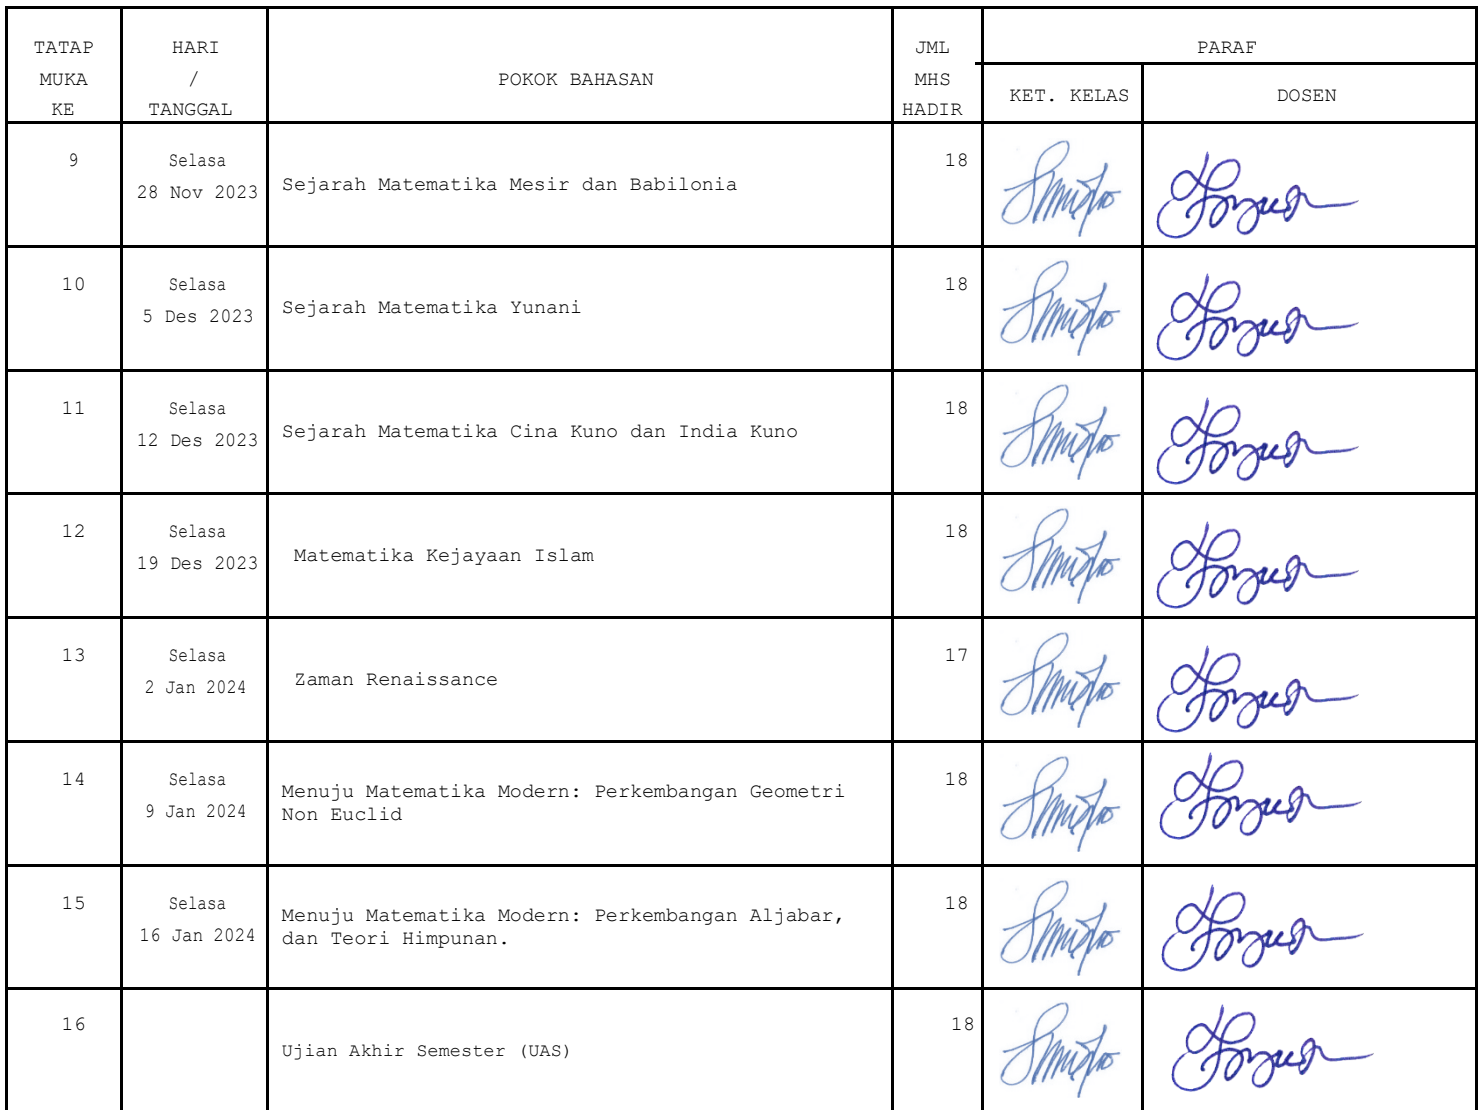 TATAP MUKA KE
HARI / TANGGAL
POKOK BAHASAN
JML MHS HADIR
PARAF
KET. KELAS
DOSEN
9
Selasa
28 Nov 2023
Sejarah Matematika Mesir dan Babilonia
18
10
Selasa
5 Des 2023
Sejarah Matematika Yunani
18
11
Selasa
12 Des 2023
Sejarah Matematika Cina Kuno dan India Kuno
18
12
Selasa
19 Des 2023
Matematika Kejayaan Islam
18
13
Selasa
2 Jan 2024
Zaman Renaissance
17
14
Selasa
9 Jan 2024
Menuju Matematika Modern: Perkembangan Geometri
Non Euclid
18
15
Selasa
16 Jan 2024
Menuju Matematika Modern: Perkembangan Aljabar,
dan Teori Himpunan.
18
16
Ujian Akhir Semester (UAS)
18